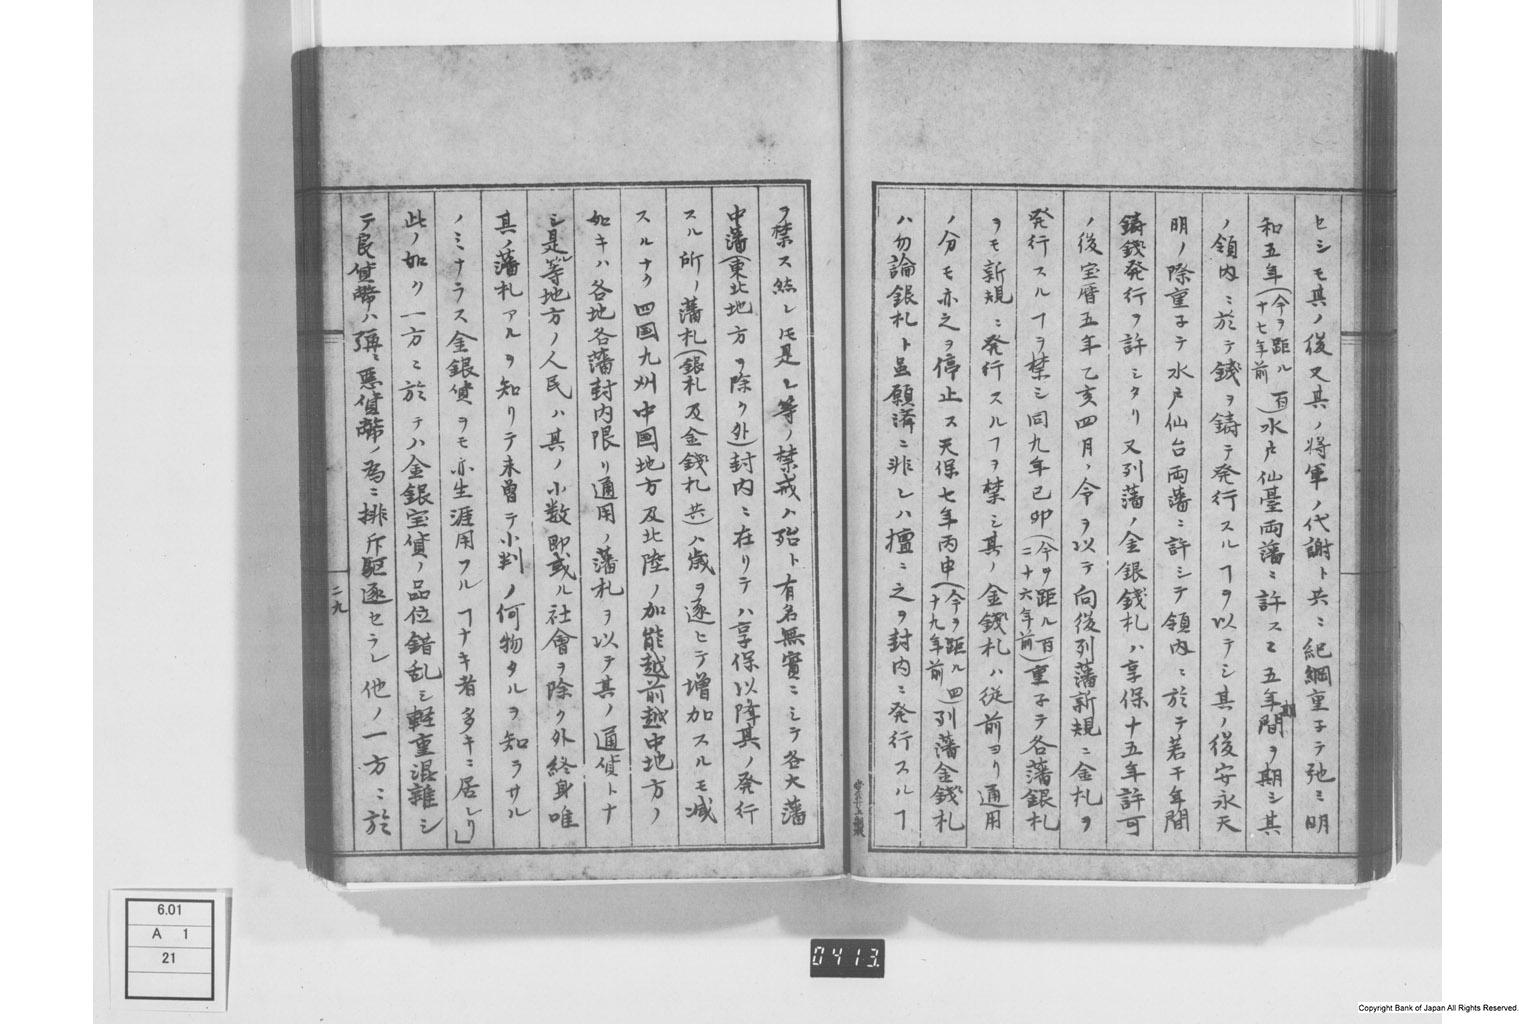 セシモ其ノ後又其ノ将軍ノ代謝ト共ニ紀綱重子テ弛ミ明
和五年(今ヲ距ル百十七年前)水戸仙臺両藩ニ許スニ五年間ヲ期シ其
期
ノ領内ニ於テ銭ヲ鋳テ発行スルヿヲ以テシ其ノ後安永天
明ノ際重子テ水戸仙台両藩ニ許シテ領内ニ於テ若干年間
鋳銭発行ヲ許シタリ又列藩ノ金銀銭札ハ享保十五年許可
ノ後宝暦五年乙亥四月、令ヲ以テ向後列藩新規ニ金札ヲ
発行スルヿヲ禁シ同九年己卯(今ヲ距ル百二十六年前)重子テ各藩銀札
ヲモ新規ニ発行スルヿヲ禁シ其ノ金銭札ハ従前ヨリ通用
ノ分モ亦之ヲ停止ス天保七年丙申(今ヲ距ル四十九年前)列藩金銭札
ハ勿論銀札ト虽願済ニ非レハ擅ニ之ヲ封内ニ発行スルヿ
ヲ禁ス然レ𪜈是レ等ノ禁戒ハ殆ト有名無實ニシテ各大藩
中藩(東北地方ヲ除ク外)封内ニ在リテハ享保以降其ノ発行
スル所ノ藩札(銀札及金銭札共)ハ歳ヲ逐ヒテ増加スルモ減
スルナク四国九州中国地方及北陸ノ加能越前越中地方ノ
如キハ各地各藩封内限リ通用ノ藩札ヲ以テ其ノ通貨トナ
シ是レ等地方ノ人民ハ其ノ小数即或ル社會ヲ除ク外終身唯
其ノ藩札アルヲ知リテ未曽テ小判ノ何物タルヲ知ラサル
ノミナラス金銀貨ヲモ亦生涯用フルヿナキ者多キニ居レリ」
此ノ如ク一方ニ於テハ金銀宝貨ノ品位錯乱シ軽重混雜シ
テ良貨幣ハ弥〻悪貨幣ノ為ニ排斥駆逐セラレ他ノ一方ニ於
二九
6.01
A 1
21
0413.
Copyright Bank of Japan All Rights Reserved.